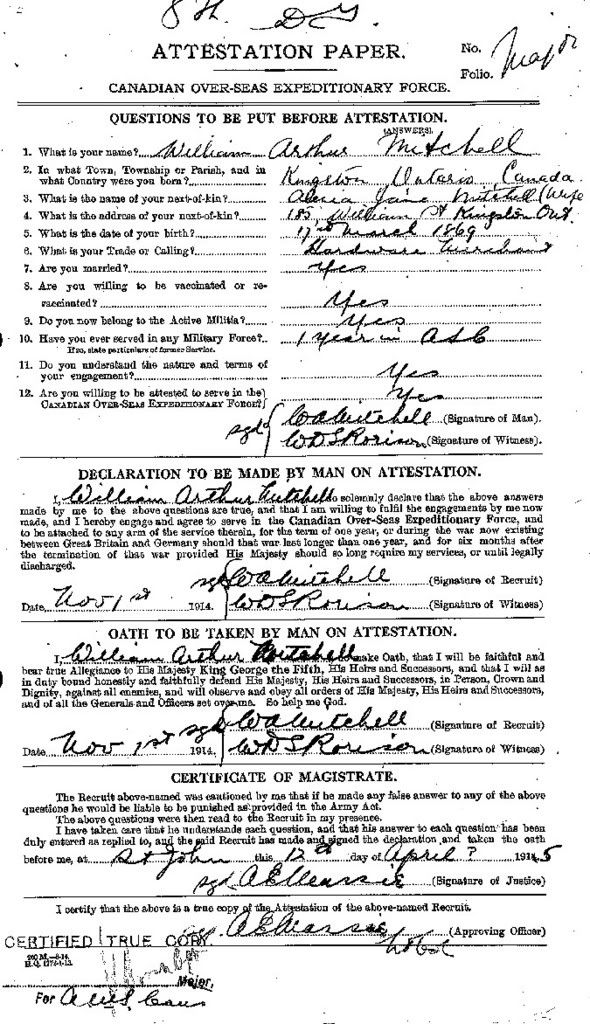 ATTESTATION PAPER.
No.
Folio.
Major
CANADIAN OVER-SEAS EXPEDITIONARY FORCE.
QUESTIONS TO BE PUT BEFORE ATTESTATION.
(ANSWERS).
1. What is your name? William Arthur Mitchell
2. In what Town, Township or Parish, and in
what Country were you born? Kingston Ontario Canada
3. What is the name of your next-of-kin? Jane Mitchell (Wife
4. What is the address of your next-of-kin? 185, William St Kingston Ont
5. What is the date of your birth? 17th March 1869
6. What is your Trade or Calling? Hardware Merchant
7. Are you married? Yes
8. Are you willing to be vaccinated or re-
vaccinated? Yes
9. Do you now belong to the Active Militia? Yes
10. Have you ever served in any Military Force? 1 year in ASC
If so, state particulars of former Service.
11. Do you understand the nature and terms of
your engagement? Yes
12. Are you willing to be attested to serve in the
CANADIAN OVER-SEAS EXPEDITIONARY FORCE? Yes
sgd WA Mitchell (Signature of Man).
WDS Rorison (Signature of Witness).
DECLARATION TO BE MADE BY MAN ON ATTESTATION.
I, William Arthur Mitchell do solemnly declare that the above answers
made by me to the above questions are true, and that I am willing to fulfil the engagements by me now
made, and I hereby engage and agree to serve in the Canadian Over-Seas Expeditionary Force, and
to be attached to any arm of the service therein, for the term of one year, or during the war now existing
between Great Britain and Germany should that war last longer than one year, and for six months after
the termination of that war provided His Majesty should so long require my services, or until legally
discharged.
sgd WA Mitchell (Signature of Recruit)
Date Nov 1st 1914. WDS Rorison (Signature of Witness)
OATH TO BE TAKEN BY MAN ON ATTESTATION.
I, William Arthur Mitchell do make Oath, that I will be faithful and
bear true Allegiance to His Majesty King George the Fifth, His Heirs and Successors, and that I will as
in duty bound honestly and faithfully defend His Majesty, His Heirs and Successors, in Person, Crown and
Dignity, against all enemies, and will observe and obey all orders of His Majesty, His Heirs and Successors,
and of all the Generals and Officers set over me. So help me God.
sgd WA Mitchell (Signature of Recruit)
Date Nov 1st 1914. WDS Rorison (Signature of Witness)
CERTIFICATE OF MAGISTRATE.
The Recruit above-named was cautioned by me that if he made any false answer to any of the above
questions he would be liable to be punished as provided in the Army Act.
The above questions were then read to the Recruit in my presence.
I have taken care that he understands each question, and that his answer to each question has been
duly entered as replied to, and the said Recruit has made and signed the declaration and taken the oath
before me, at St John this 12th day of April? 1915
sgd (Signature of Justice)
I certify that the above is a true copy of the Attestation of the above-named Recruit.
(Approving Officer)
CERTIFIED TRUE COPY
Major,
For